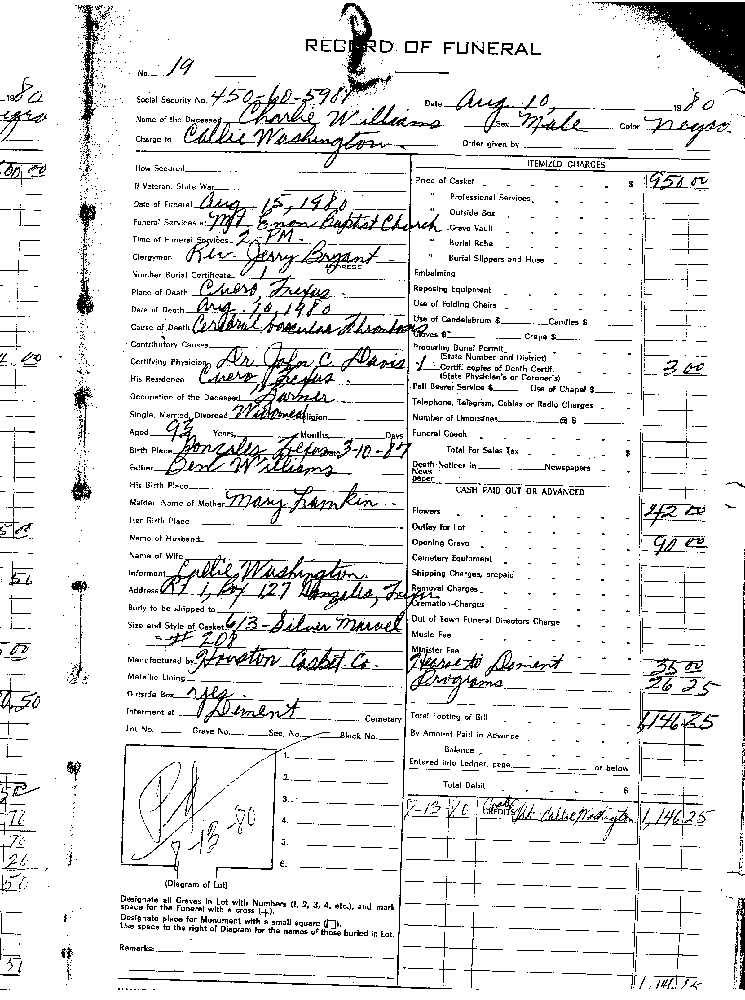 RECORD OF FUNERAL
No. 19
Social Security No. 450-60-5981 Date Aug. 10, 1980
Name of the Deceased Charlie Williams Sex Male Color Negro
Charge to Callie Washington Order given by
How Secured
If Veteran, State War
Date of Funeral Aug 15, 1980
Funeral Services at Mt. Enon Baptist Church
Time of Funeral Services 2 PM.
Clergyman Rev. Jerry Bryant
ADDRESS
Number Burial Certificate 1
Place of Death Cuero Texas
Date of Death Aug. 10, 1980
Cause of Death Cerebral Vascular Thrombosis
Contributory Causes
Certifying Physician Dr. John C. Davis
His Residence Cuero Texas
Occupation of the Deceased Farmer
Single, Married, Divorced Widowed Religion
Aged 93 Years, Months, Days
Birth Place Gonzales Texas 3-10-87
Father Ben Williams
His Birth Place
Maiden Name of Mother Mary Lamkin
Her Birth Place
Name of Husband
Name of Wife
Informant Callie Washington
Address Rt 1, Box 127 Gonzales, Texas
Body to be shipped to
Size and Style of Casket 6/3 - Silver Marvel
# 208
Manufactured by Houston Casket Co.
Metallic Lining
Outside Box yes.
Interment at Dement Cemetery
Lot No. Grave No. Sec. No. Block No.
1.
2.
3.
4.
5.
6.
Pd
-13-80
(Diagram of Lot)
Designate all Graves in Lot with Numbers (1, 2, 3, 4, etc.), and mark
space for the Funeral with a cross (+).
Designate place for Monument with a small square (□).
Use space to the right of Diagram for the names of those buried in Lot.
Remarks
ITEMIZED CHARGES
Price of Casket $ 950 00
" Professional Services
" Outside Box
" Grave Vault
" Burial Robe
" Burial Slippers and Hose
Embalming
Reposing Equipment
Use of Folding Chairs
Use of Candelabrum $ Candles $
Gloves $ Crape $
Procuring Burial Permit
(State Number and District)
1 Certif. copies of Death Certif. 3 00
(State Physician's or Coroner's)
Pall Bearer Service $ Use of Chapel $
Telephone, Telegram, Cables or Radio Charges
Number of Limousines @ $
Funeral Coach
Total for Sales Tax $
Death Notices in Newspapers
News
paper
CASH PAID OUT OR ADVANCED
Flowers 42 00
Outlay for Lot
Opening Grave 90 00
Cemetery Equipment
Shipping Charges, prepaid
Removal Charges
Cremation Charges
Out of Town Funeral Directors Charge
Music Fee
Minister Fee
Hearse to Dement 35 00
Programs 26 25
Total Footing of Bill 1,146.25
By Amount Paid in Advance
Balance
Entered into Ledger, page or below
Total Debit $
-13 80 CREDITS Callie Washington 1,146.25
1,146.25